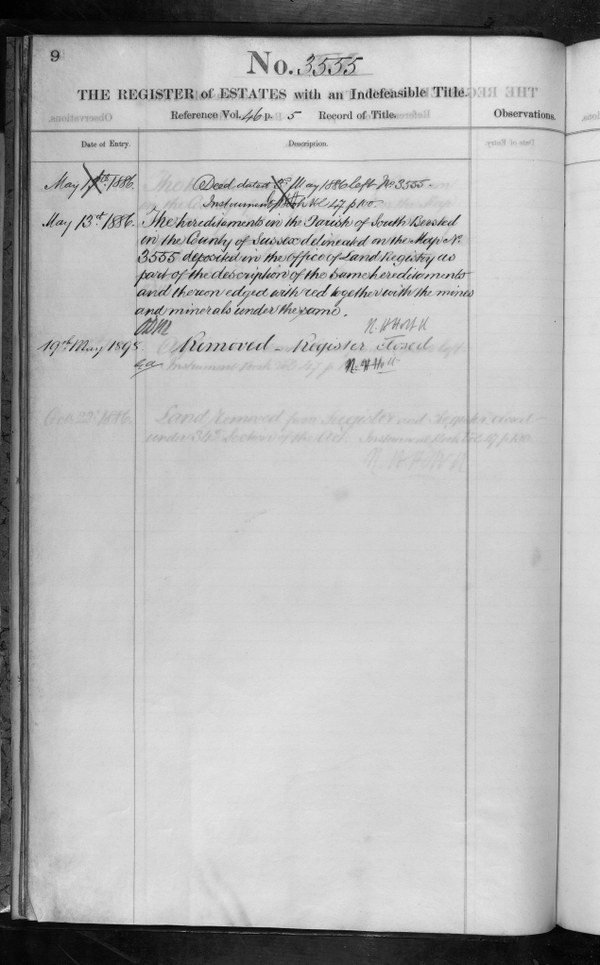 9
No. 3555
THE REGISTER of ESTATES with an Indefeasible Title.
Reference Vol. 46 p. 5 Record of Title.
Observations.
Date of Entry.
Description.
May 1886. Deed dated May 1886 left No 3555.
Instrument Book Vol 47 p 110
May 13th 1886. The hereditaments in the Parish of South Bersted
in the County of Sussex delineated on the Map No.
3555 deposited in the Office of Land Registry as
part of the description of the same hereditaments
and thereon edged with red together with the mines
and minerals under the same.
N. H Holt
19th May 1898. Removed - Register closed
N. H Holt
Oct 22 1886. Land removed from Register and Register closed
under 34th Section of the Act. Instrument Book Vol
N. H Holt